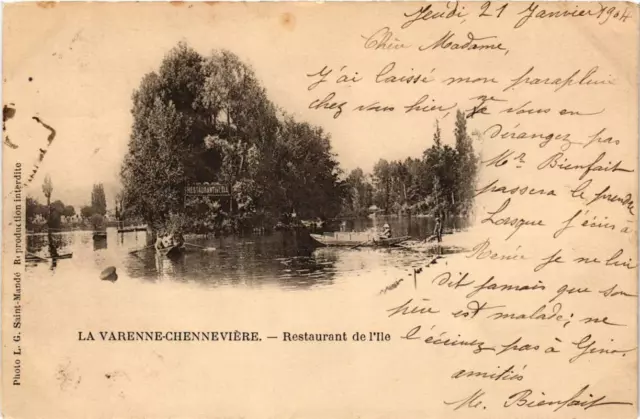 Jeudi, 21 Janvier 1904
Chère Madame,
J'ai laissé mon parapluie
chez vous hier, je vous en
dérangez pas
Mr Bienfait
passera le prendre
Lorsque j'écris à
Renée je ne lui
dit jamais que son
père est malade; ne
l'écrivez pas à
amitiés
M. Bienfait
RESTAURANT DE L'ILE
LA VARENNE-CHENNEVIÈRE. — Restaurant de l'Ile
Photo L. G. Saint-Mandé Reproduction interdite